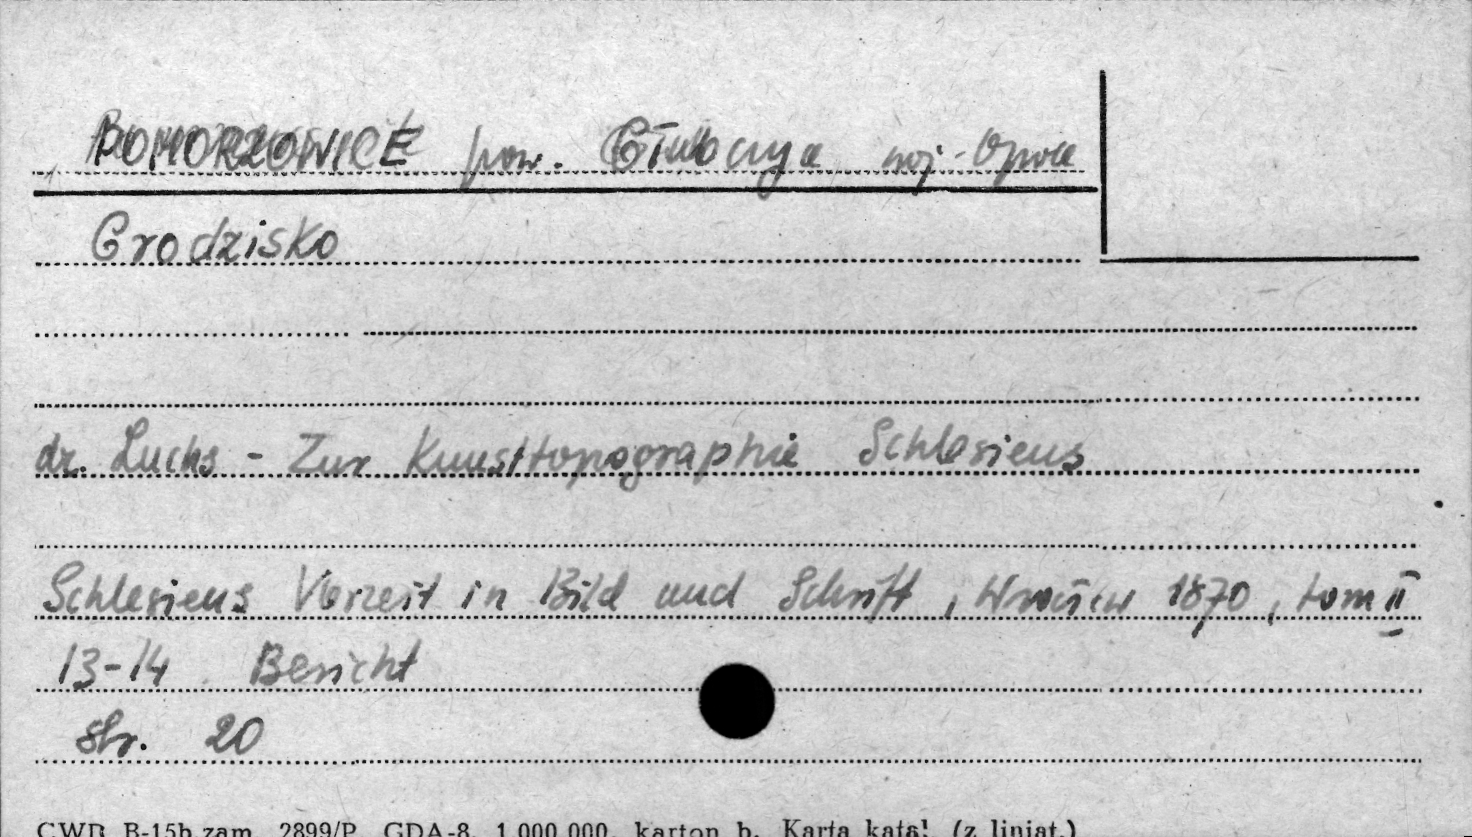 POMORZOWICE pow. Głubczyce woj. Opole
Grodzisko
dr. Luchs - Zur Kunsttopographie Schlesiens
Schlesiens Vorzeit in Bild und Schrift, Wrocław 1870, tom II
13-14 Bericht
str. 20
CWD B-15b zam. 2899/P GDA-8 1.000.000. karton b. Karta katal. (z liniat.)